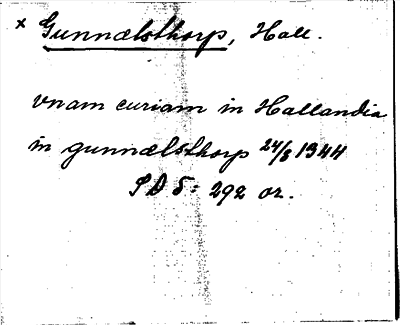 x Gunnælsthorp, Hall.
vnam curiam in Hallandia
in gunnælsthorp 24/8 1344
SD 5: 292 or.